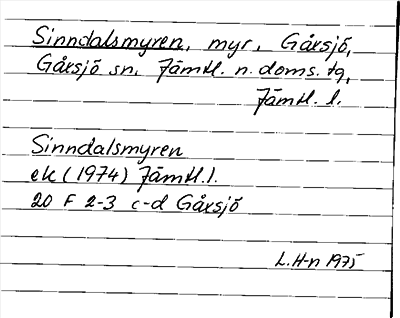 Sinndalsmyren, myr, Gåxsjö,
Gåxsjö sn, Jämtl. n. doms. tg,
Jämtl. l.
Sinndalsmyren
ek (1974) Jämtl. l.
20 F 2-3 c-d Gåxsjö
L. H-n 1975